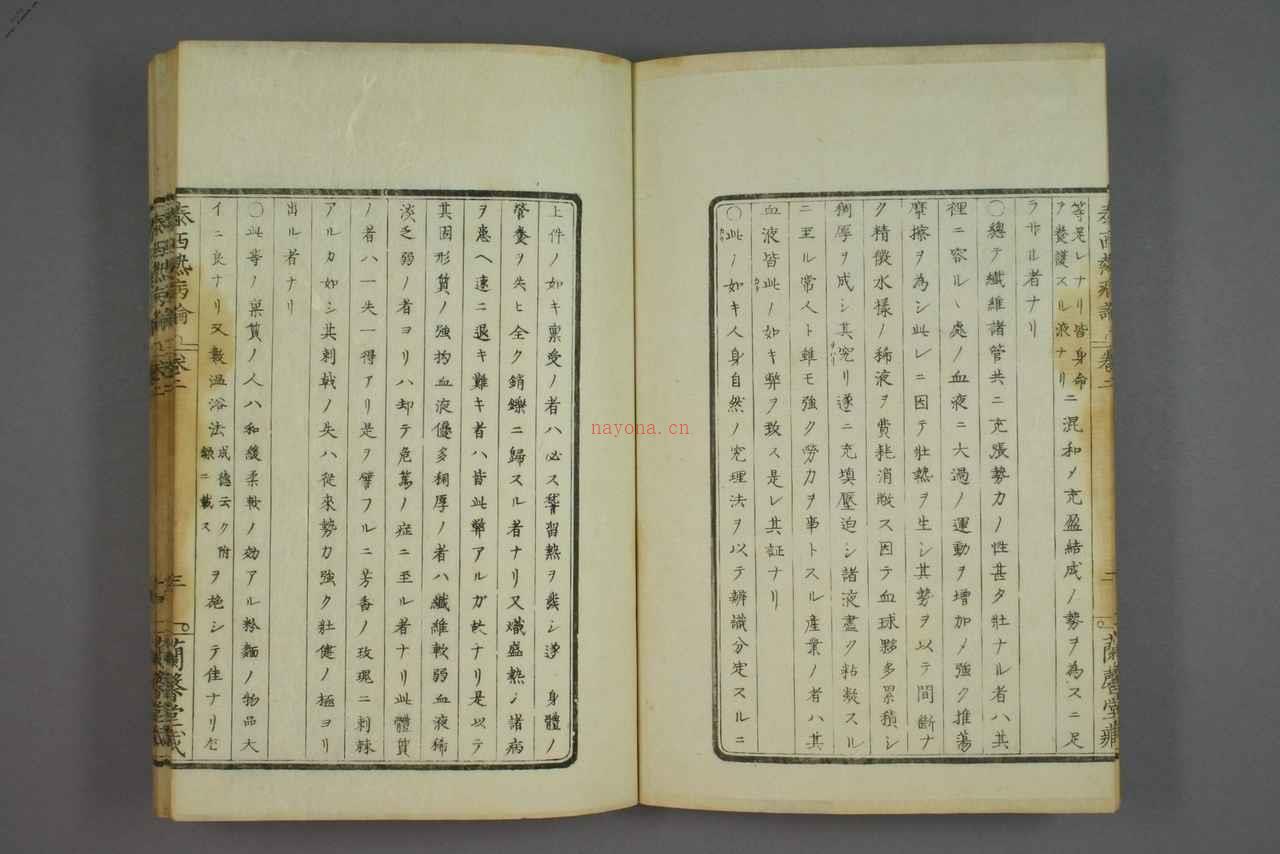 等是レナリ皆身命
ヲ養護スル液ナリ
ニ混和メ充盈結成ノ勢ヲ為スニ足
ラサル者ナリ
〇總テ纎維諸管共ニ充張勢力ノ性甚タ壮ナル者ハ其
裡ニ容ルヽ處ノ血液ニ大過ノ運動ヲ増加メ強ク推蕩
摩擦ヲ為シ此レニ因テ壮熱ヲ生シ其勢ヲ以テ間斷ナ
ク精微水樣ノ稀液ヲ費耗消散ス因テ血球夥多累積シ
稠厚ヲ成シ其究リ遂ニ充填壓迫シ諸液盡ク粘凝スル
ニ至ル常人ト雖モ強ク勞力ヲ事トスル産業ノ者ハ其
血液皆此ノ如キ弊ヲ致ス是レ其証ナリ
〇此ノ如キ人身自然ノ究理法ヲ以テ辨識分定スルニ
上件ノ如キ稟受ノ者ハ必ス稽留熱ヲ発シ遂身體ノ
管養ヲ失ヒ全ク銷鑠ニ歸スル者ナリ又熾盛熱シ諸病
ヲ患ヘ速ニ退キ難キ者ハ皆此弊アルガ故ナリ是以テ
其固形質ノ強抅血液優多稠厚ノ者ハ纎維軟弱血液稀
淡乏弱ノ者ヨリハ却テ危篤ノ症ニ至ル者ナリ此體質
ノ者ハ一失一得アリ是ヲ譬フルニ芳香ノ玫瑰ニ刺棘
アルカ如シ其刺戟ノ失ハ從來勢力強ク壮健ノ極ヨリ
出ル者ナリ
〇此等ノ稟質ノ人ハ和緩柔軟ノ効アル粉麺ノ物品大
イニ良ナリ又數温浴法
成德云ク附
録ニ載ス
ヲ施シテ佳ナリ
泰西熱病論
卷二
蘭馨堂藏
nayona.cn